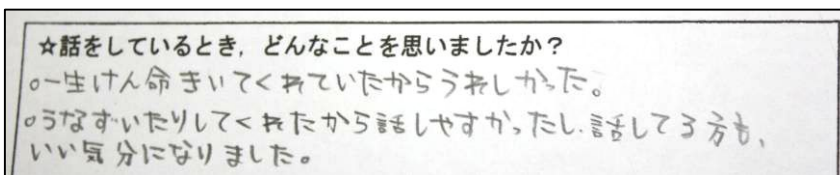 ☆話をしているとき，どんなことを思いましたか？
○一生けん命きいてくれていたからうれしかった。
○うなずいたりしてくれたから話しやすかったし、話してる方も、
いい気分になりました。